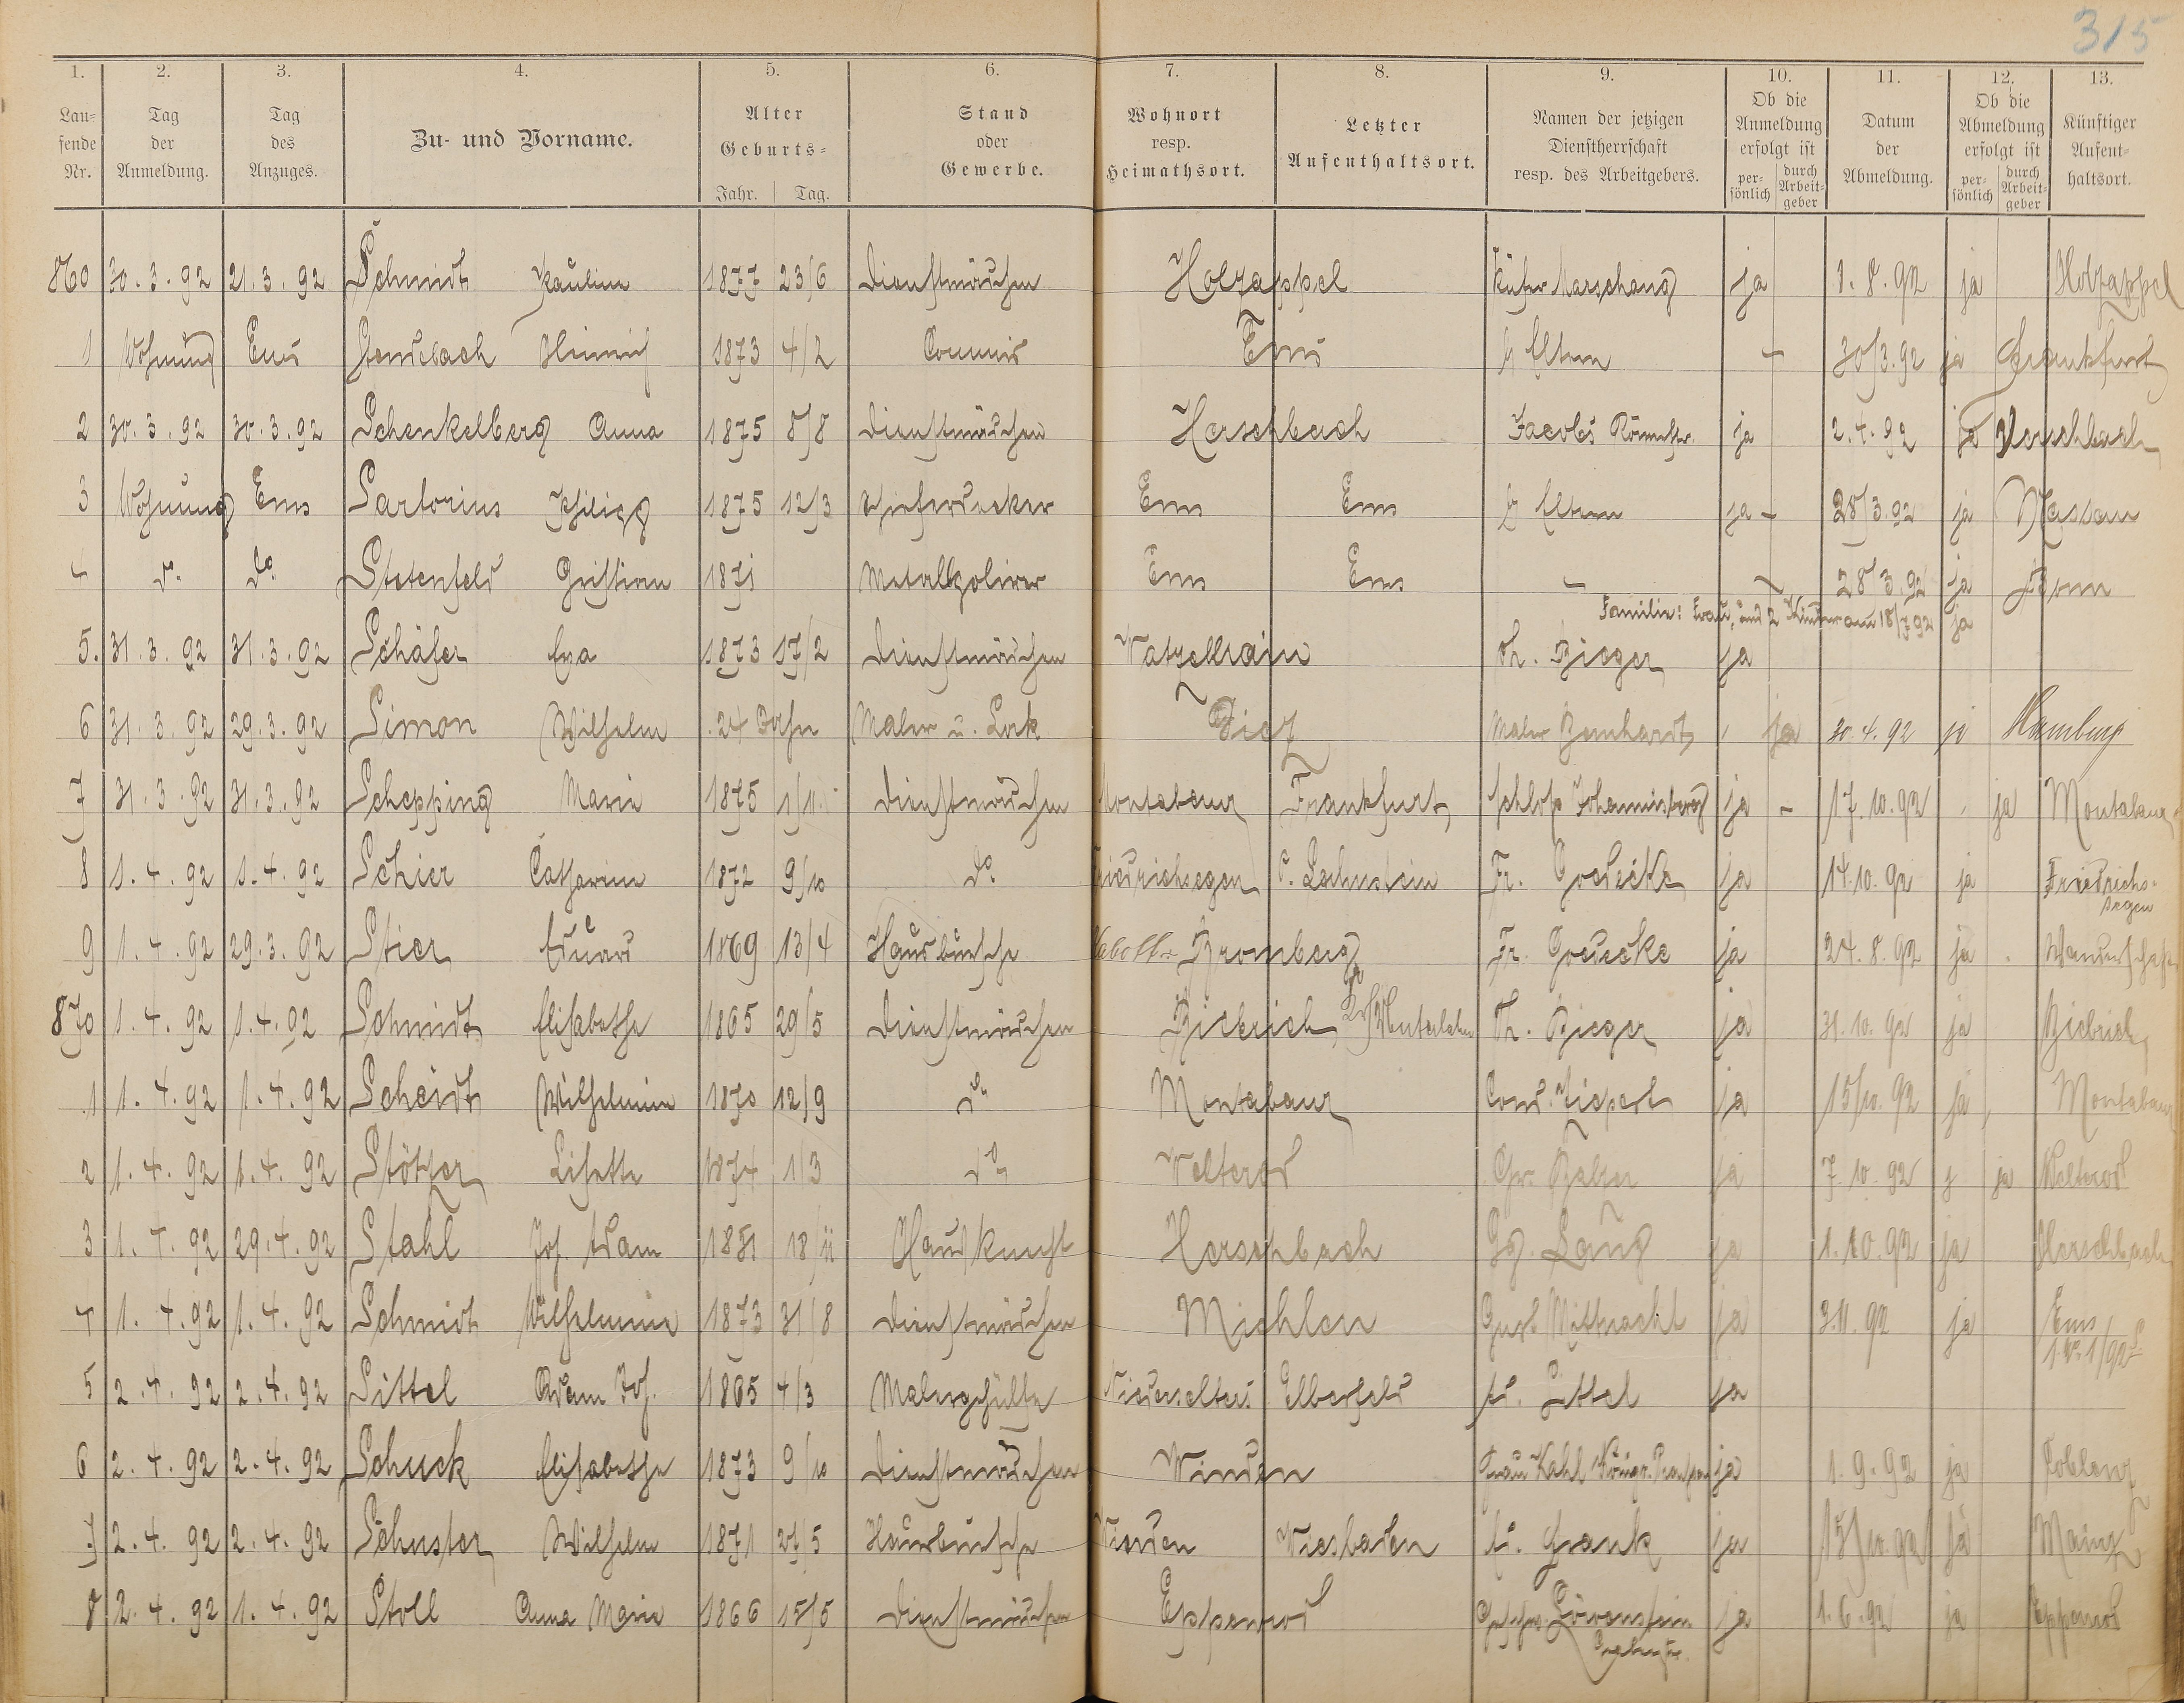 315
1. 2. 3. 4. 5. 6. 7. 8. 9. 10. 11. 12. 13.
Lau=fende Nr. Tag der Anmeldung. Tag des Anzuges. Zu- und Vorname. Alter Geburts= Jahr. Tag. Stand oder Gewerbe. Wohnort resp. Heimathsort. Letzter Aufenthaltsort. Namen der jetzigen Dienstherrschaft resp. des Arbeitgebers. Ob die Anmeldung erfolgt ist per=sönlich durch Arbeit=geber Datum der Abmeldung. Ob die Abmeldung erfolgt ist per=sönlich durch Arbeit=geber Künftiger Aufent=haltsort.
860 30.3.92 21.3.92 Schmidt Pauline 1877 23/6 Dienstmädchen Holzappel ja 1.8.92 ja Holzappel
1 Wohnung Ems Heinrich 1873 4/2 Commis Ems Eltern - 30/3.92 ja Frankfurt
2 30.3.92 30.3.92 Schenkelberg Anna 1875 8/8 Dienstmädchen Herschbach Jacobs Römerstr. ja 2.4.92 ja Herschbach
3 Wohnung Ems Sartorius Philipp 1875 12/3 Schieferdecker Ems Ems Eltern ja - 28/3.92 ja Nassau
4 do. do. Stetenfeld Christian 1871 Metallpolirer Ems Ems - - 28 3.92 ja Bonn
Familie: Frau, und 2 Kinder am 18/7 92 ja
5. 31.3.92 31.3.92 Schäfer Eva 1873 17/2 Dienstmädchen Watzelhain Th. Bieger ja
6 31.3.92 29.3.92 Simon Wilhelm 24 Jahre Maler u. Lack Diez Maler Bernhardt ja 30.4.92 ja Hamburg
7 31.3.92 31.3.92 Schepping Maria 1875 1/11. Dienstmädchen Montabaur Frankfurt Schloß Johannisberg ja - 17.10.92 ja Montabaur
8 1.4.92 1.4.92 Schier Catharine 1872 9/10 do. Friedrichsegen O. Lahnstein Fr. Goedecke ja 14.10.92 ja Friedrichs-segen
9 1.4.92 29.3.92 Stier Eduard 1869 13/4 Hausbursche Bromberg Fr. Goedecke ja 24.8.92 ja Wanderschaft
870 1.4.92 1.4.92 Schmidt Elisabethe 1865 29/5 Dienstmädchen Biebrich Th. Bieger ja 31.10.92 ja Biebrich
1 1.4.92 1.4.92 Scheidt Wilhelmine 1870 12/9 do. Montabaur ja 15/10.92 ja Montabaur
2 1.4.92 1.4.92 Stötzer Lisette 1874 1/3 do. Welterod Chr. Balzer ja 7.10.92 ja Welterod
3 1.4.92 29.4.92 Stahl Joh. Adam 1871 18/11 Hausknecht Herschbach Gg. Lang ja 1.10.92 ja Herschbach
4 1.4.92 1.4.92 Schmidt Wilhelmine 1873 31/8 Dienstmädchen Miehlen Gust. Wittracht ja 3.11.92 ja Ems
5 2.4.92 2.4.92 Sittel Adam Jos. 1865 4/3 Malergehülfe Niederselters Elberfeld ja
6 2.4.92 2.4.92 Schuck Elisabethe 1873 9/10 Dienstmädchen Winden Frau Kahl ja 1.9.92 ja Coblenz
7 2.4.92 2.4.92 Schuster Wilhelm 1871 27/5 Hausbursche Wiesbaden Frank ja 15/10.92 ja Mainz
8 2.4.92 1.4.92 Stoll Anna Maria 1866 15/5 Dienstmädchen Eppenrod Löwenstein ja 1.6.92 ja Eppenrod